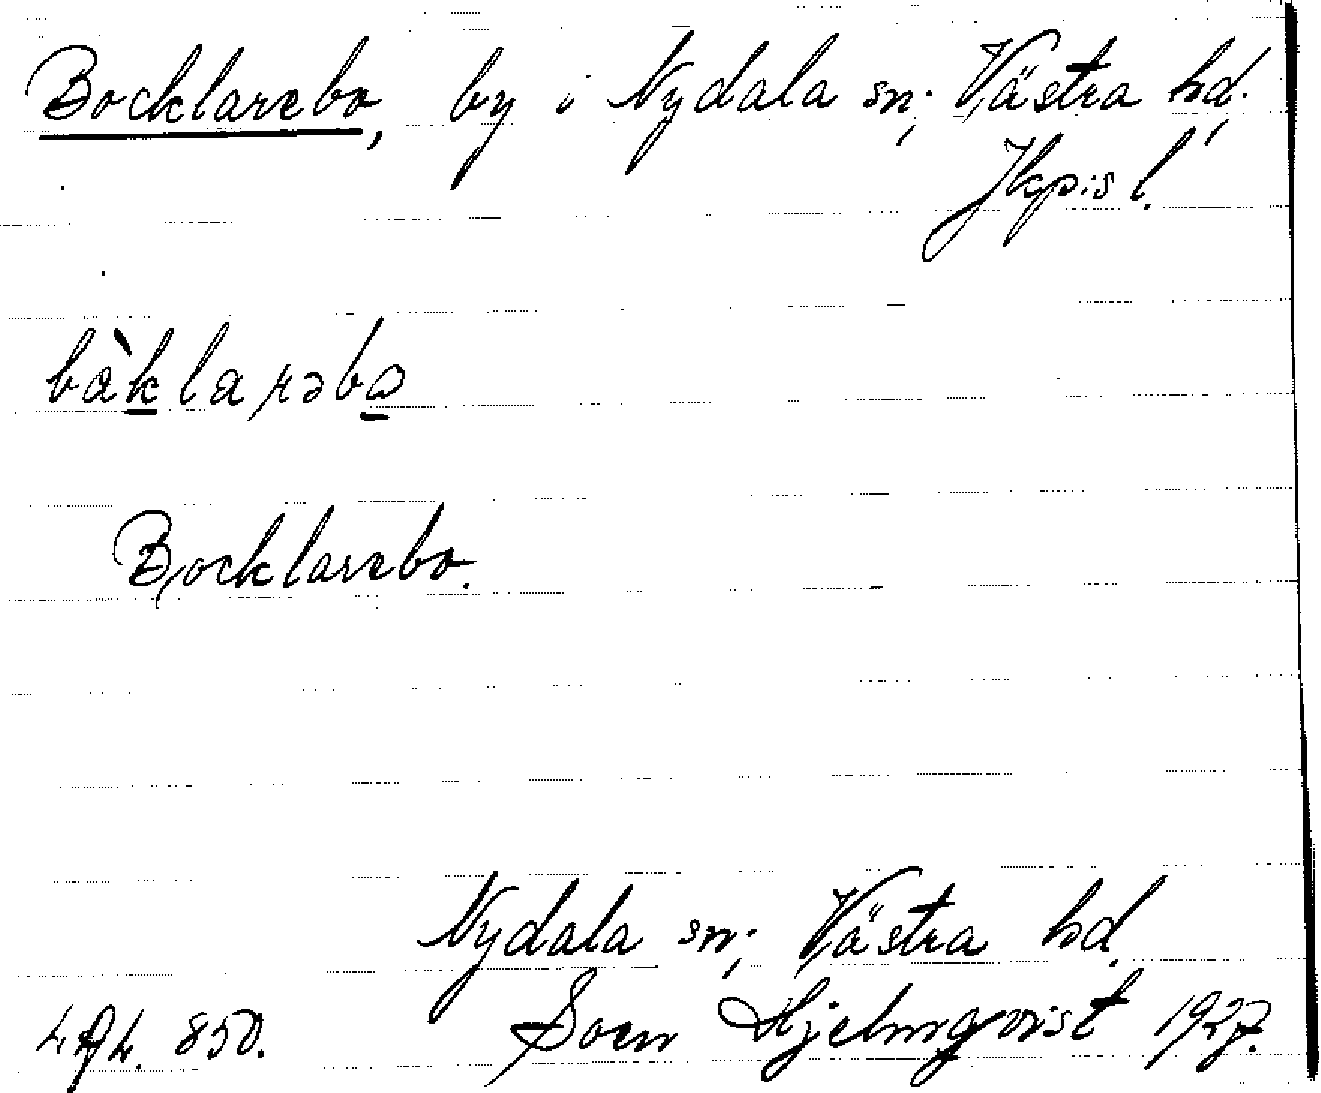 Bocklarebo, by i Nydala sn., Västra hd.,
Jkpis l.
bàklarəbo
Bocklarebo.
Nydala sn., Västra hd.
850. Sven Hjelmqvist 1927.